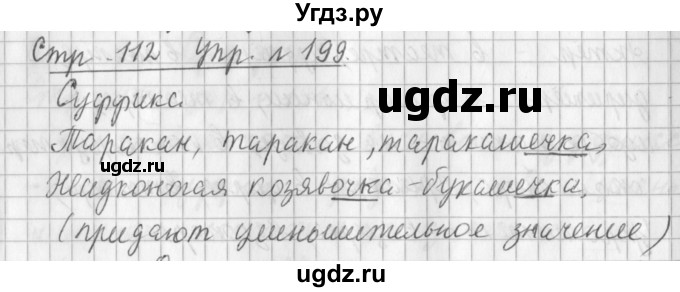 Угдз.ру
Стр 112 Упр. л 199.
Суффикс.
угдз.ру
Таракан, таракан, таракашечка,
ugdz.ru
Жидконогая козявочка-букашечка.
ugdz.ru
(придают уменьшительное значение)
ugdz.ru